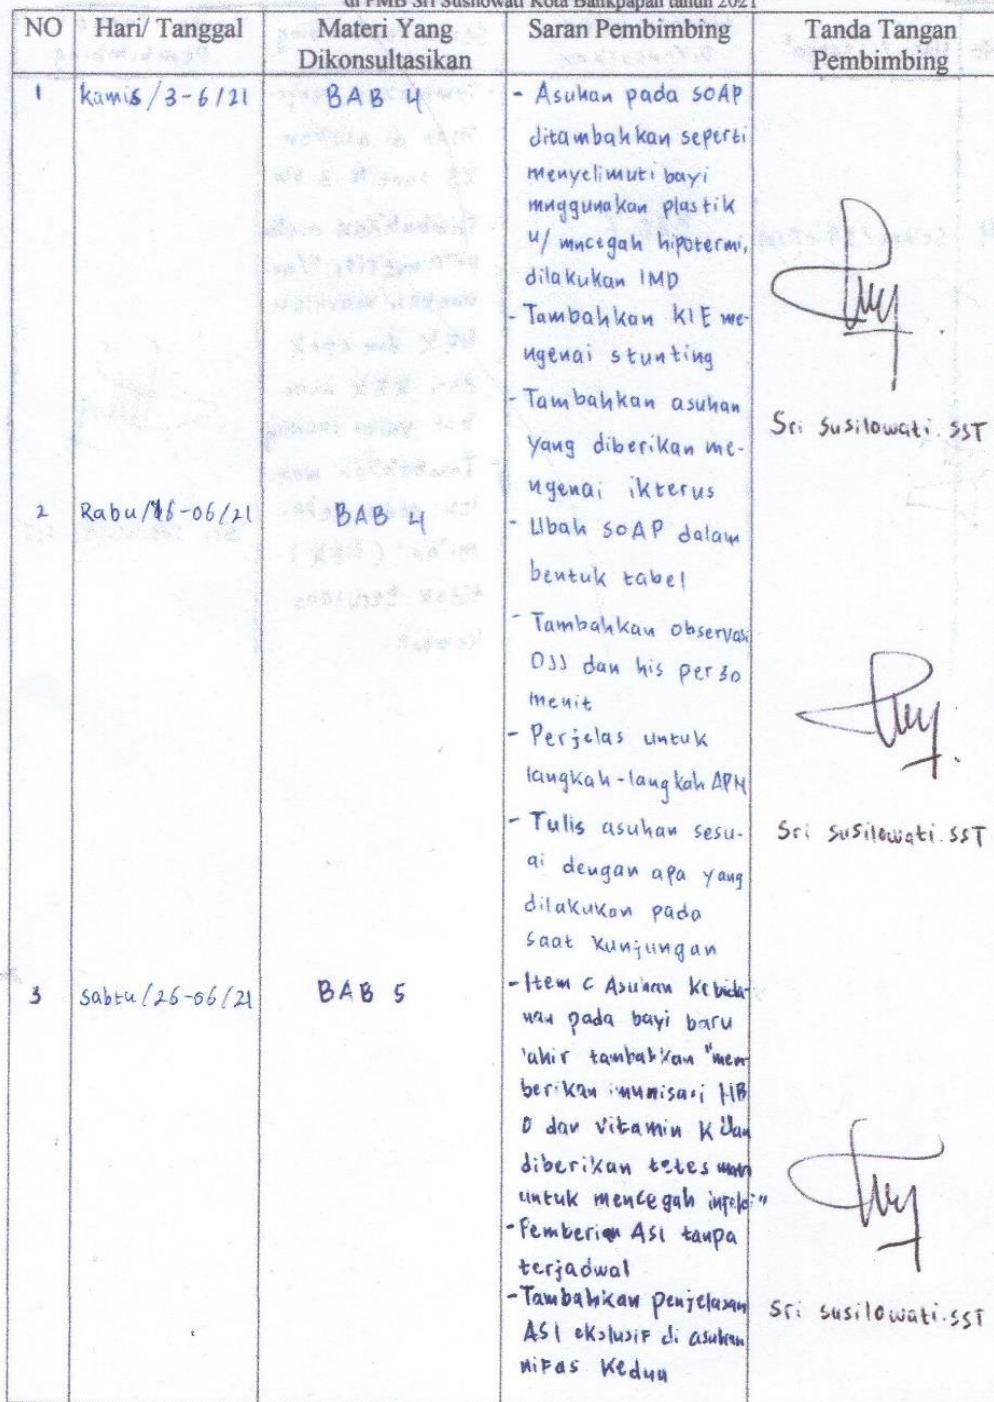 di PMB Sri Susilowati Kota Balikpapan tahun 2021
NO Hari/ Tanggal Materi Yang Dikonsultasikan Saran Pembimbing Tanda Tangan Pembimbing
1 Kamis/3-6/21 BAB 4 - Asuhan pada SOAP
ditambahkan seperti
menyelimuti bayi
mnggunakan plastik
u/ mncegah hipotermi,
dilakukan IMD
- Tambahkan KIE me-
ngenai stunting
- Tambahkan asuhan
yang diberikan me-
ngenai ikterus
Sri Susilowati. SST
2 Rabu/16-06/21 BAB 4 - Ubah SOAP dalam
bentuk tabel
- Tambahkan observasi
DJJ dan his per 30
menit
- Perjelas untuk
langkah-langkah APN
- Tulis asuhan sesu-
ai dengan apa yang
dilakukan pada
saat kunjungan
Sri Susilowati. SST
3 Sabtu/26-06/21 BAB 5 - Item C Asuhan Kebida-
nan pada bayi baru
lahir tambahkan "mem
berikan imunisasi HB
0 dan vitamin K dan
diberikan tetes mata
untuk mencegah infeksi"
- Pemberian ASI tanpa
terjadwal
- Tambahkan penjelasan
ASI ekslusif di asuhan
nifas kedua
Sri Susilowati. SST